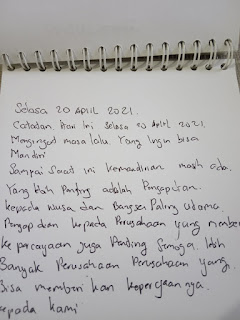 Selasa 20 April 2021.
Catatan Hari ini Selasa 20 April 2021.
Mengingat masa lalu yang ingin bisa
Mandiri
Sampai saat ini kemandirian masih ada.
Yang lebih Penting adalah Pengabdian.
kepada Nusa dan Bangsa Paling Utama
Pengabdian kepada Perusahaan yang memberi
kepercayaan juga Penting Semoga lebih
Banyak Perusahaan Perusahaan yang
Bisa memberikan kepercayaannya.
kepada kami